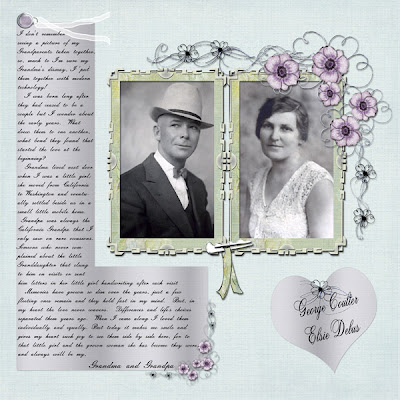 I don't remember
seeing a picture of my
Grandparents taken together,
so, much to I'm sure my
Grandma's dismay, I put
them together with modern
technology!
I was born long after
they had ceased to be a
couple but I wonder about
the early years. What
drew them to one another,
what bond they found that
started the love at the
beginning?
Grandma lived next door
when I was a little girl,
she moved from California
to Washington and eventu-
ally settled beside us in a
small little mobile home.
Grandpa was always the
California Grandpa that I
only saw on rare occasions.
Someone who never com-
plained about the little
Granddaughter that clung
to him on visits or sent
him letters in her little girl handwriting after each visit.
Memories have grown so dim over the years, just a few
fleeting ones remain and they hold fast in my mind. But, in
my heart the love never ceases. Differences and life's choices
separated them years ago. When I came along I loved them
individually and equally. But today it makes me smile and
gives my heart such joy to see them side by side here, for to
that little girl and the grown woman she has become they were
and always will be my,
Grandma and Grandpa
George Coulter
Elsie Delus